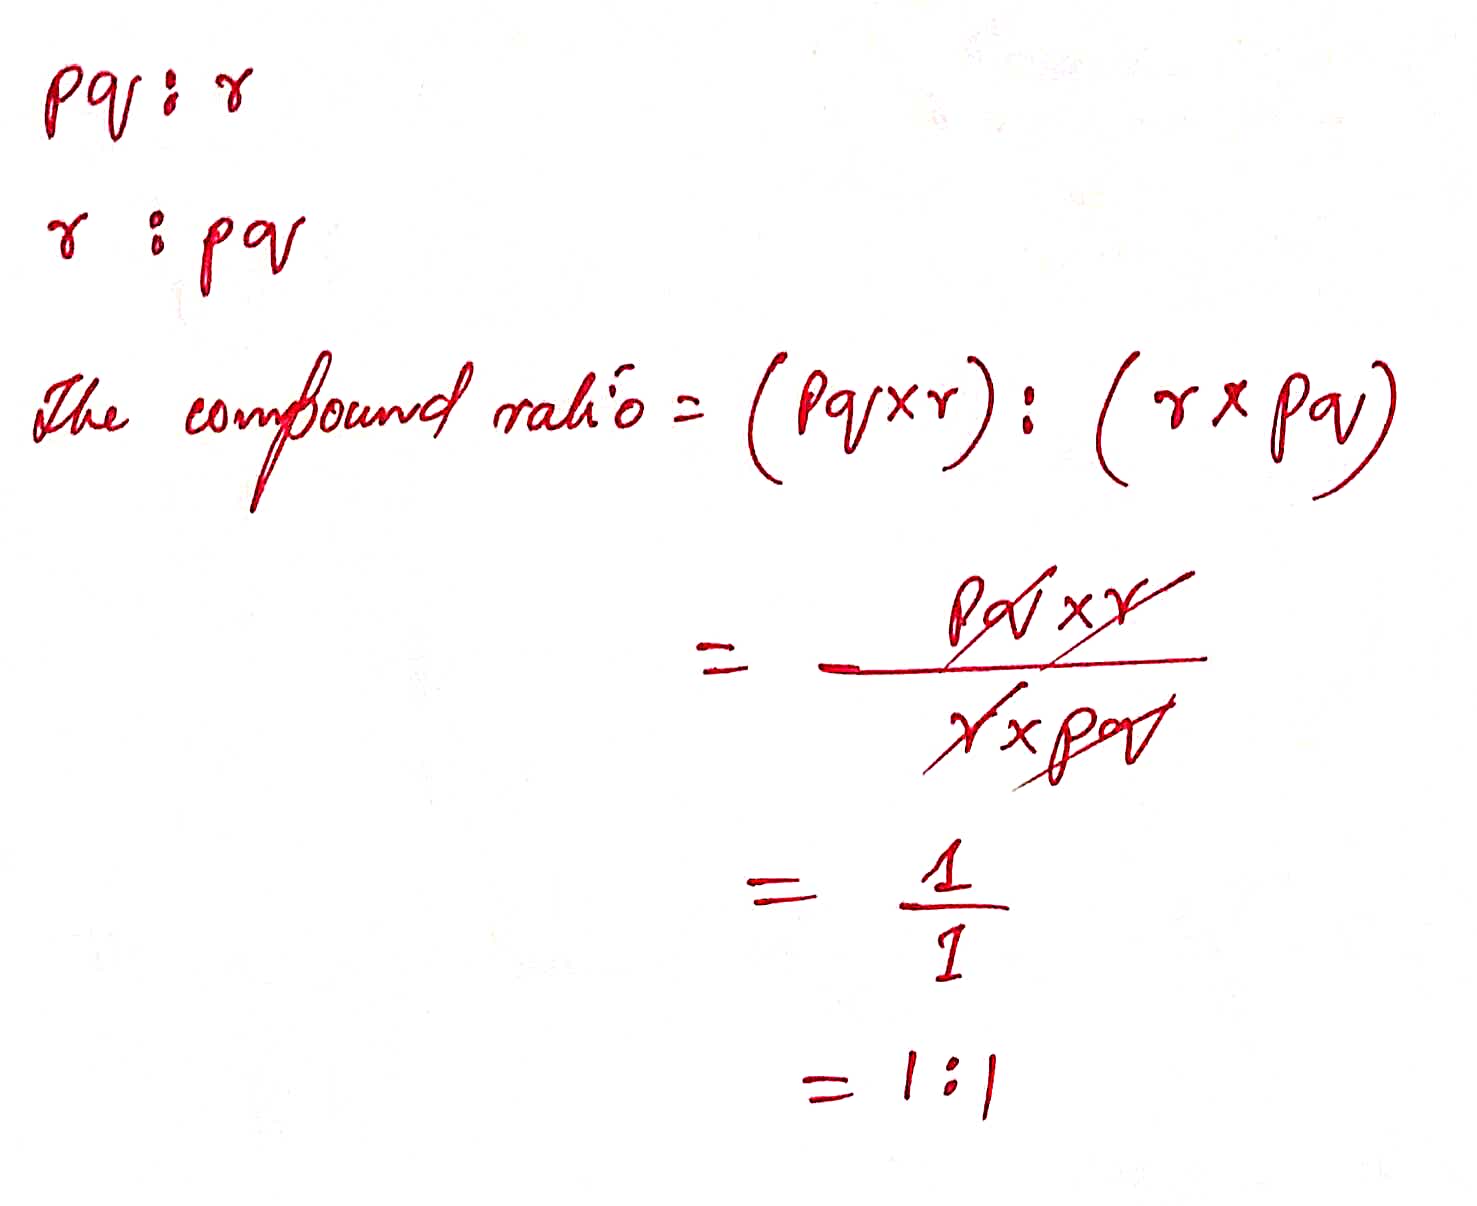 pq : r
r : pq
The compound ratio = (pq×r) : (r×pq)
= pq×r / r×pq
= 1/1
= 1:1